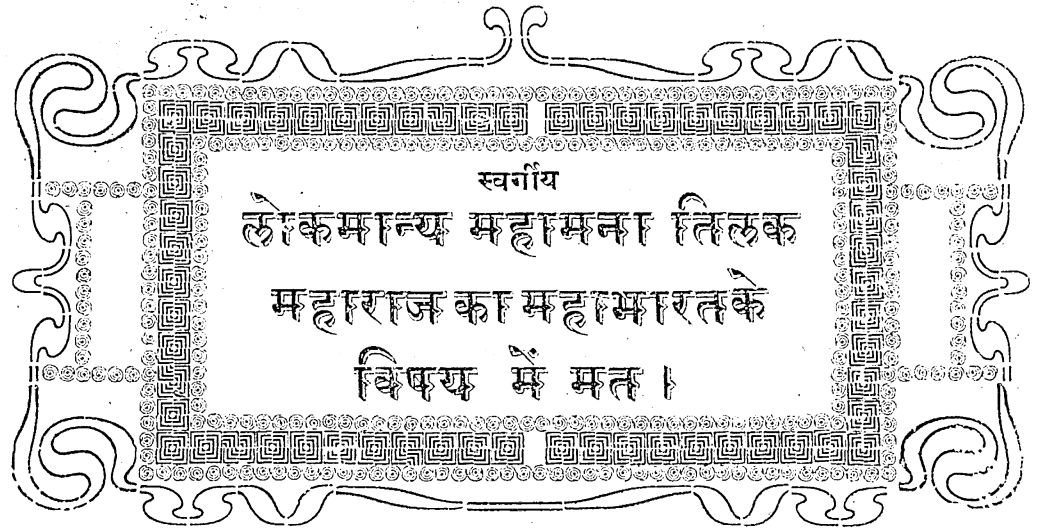 स्वर्गीय
लोकमान्य महामना तिलक
महाराज का महाभारतके
विषय में मत ।